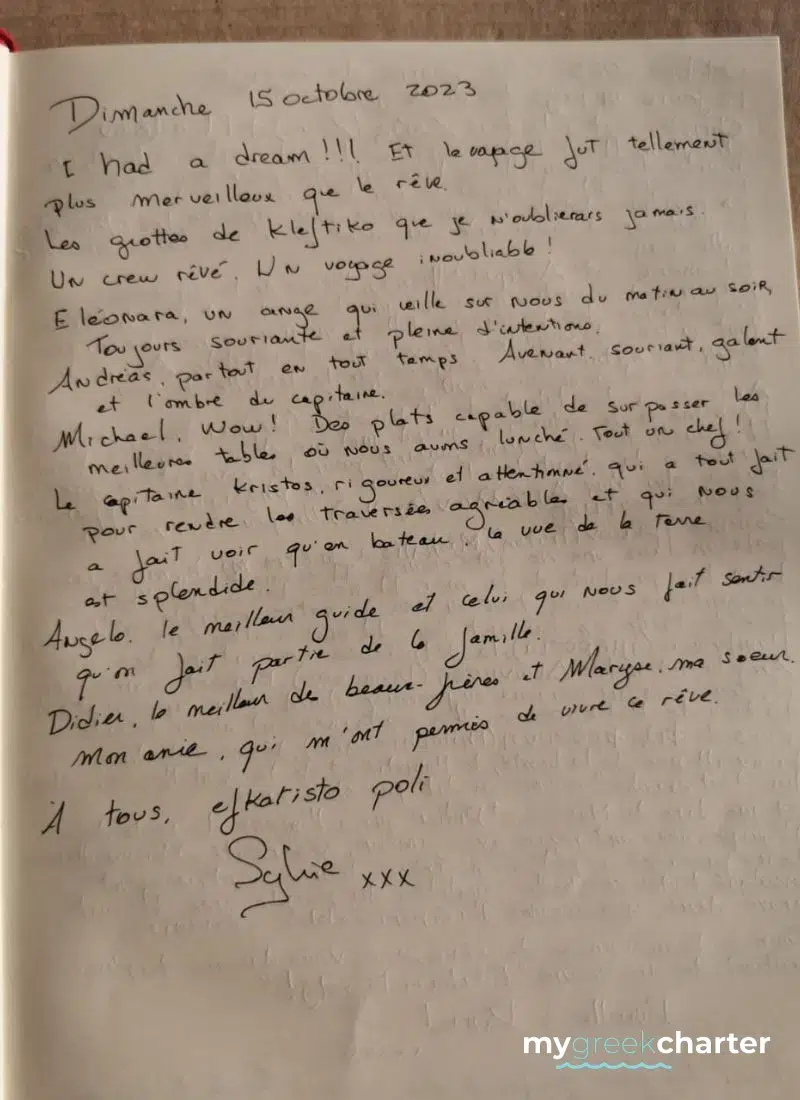 Dimanche 15 octobre 2023
I had a dream!!! Et le voyage fut tellement
plus merveilleux que le rêve.
Les grottes de Kleftiko que je n'oublierais jamais.
Un crew rêvé. Un voyage inoubliable!
Eléonara, un ange qui veille sur nous du matin au soir,
Toujours souriante et pleine d'intentions.
Andréas, partout en tout temps. Avenant, souriant, galant
et l'ombre du capitaine.
Michael, Wow! Des plats capable de surpasser les
meilleures tables où nous avons lunché. Tout un chef!
Le capitaine Kristos, rigoureux et attentionné, qui a tout fait
pour rendre les traversées agréables et qui nous
a fait voir qu'en bateau, la vue de la terre
est splendide.
Angelo, le meilleur guide et celui qui nous fait sentir
qu'on fait partie de la famille.
Didier, le meilleur de beaux-frères et Maryse, ma soeur.
Mon amie, qui m'ont permis de vivre ce rêve.
À tous, efkaristo poli
Sylvie xxx
mygreekcharter